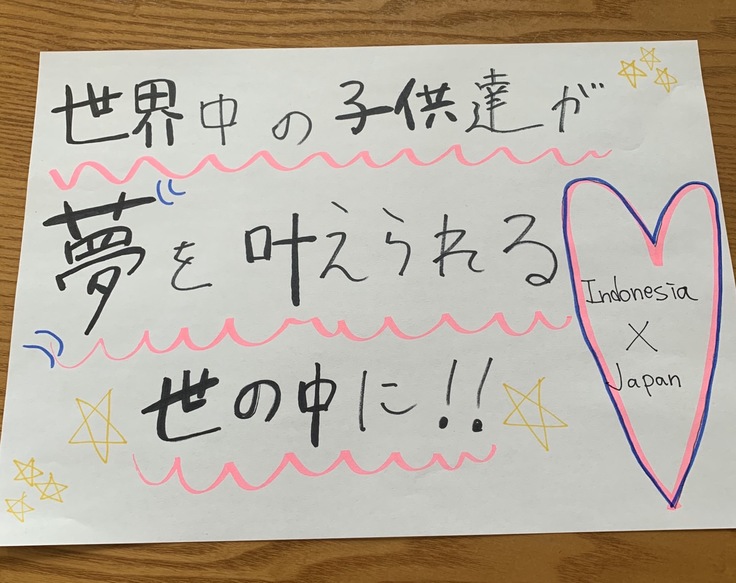 世界中の子供達が
夢を叶えられる
世の中に!!
Indonesia
X
Japan